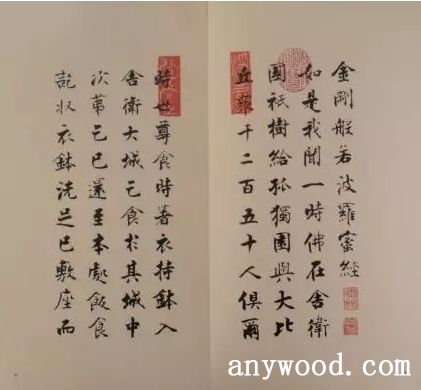 金剛般若波羅蜜經
如是我聞一時佛在舍衛
國祇樹給孤獨園與大比
丘衆千二百五十人俱爾
時世尊食時著衣持鉢入
舍衛大城乞食於其城中
次苐乞已還至本處飯食
訖收衣鉢洗足已敷座而
anywood.com